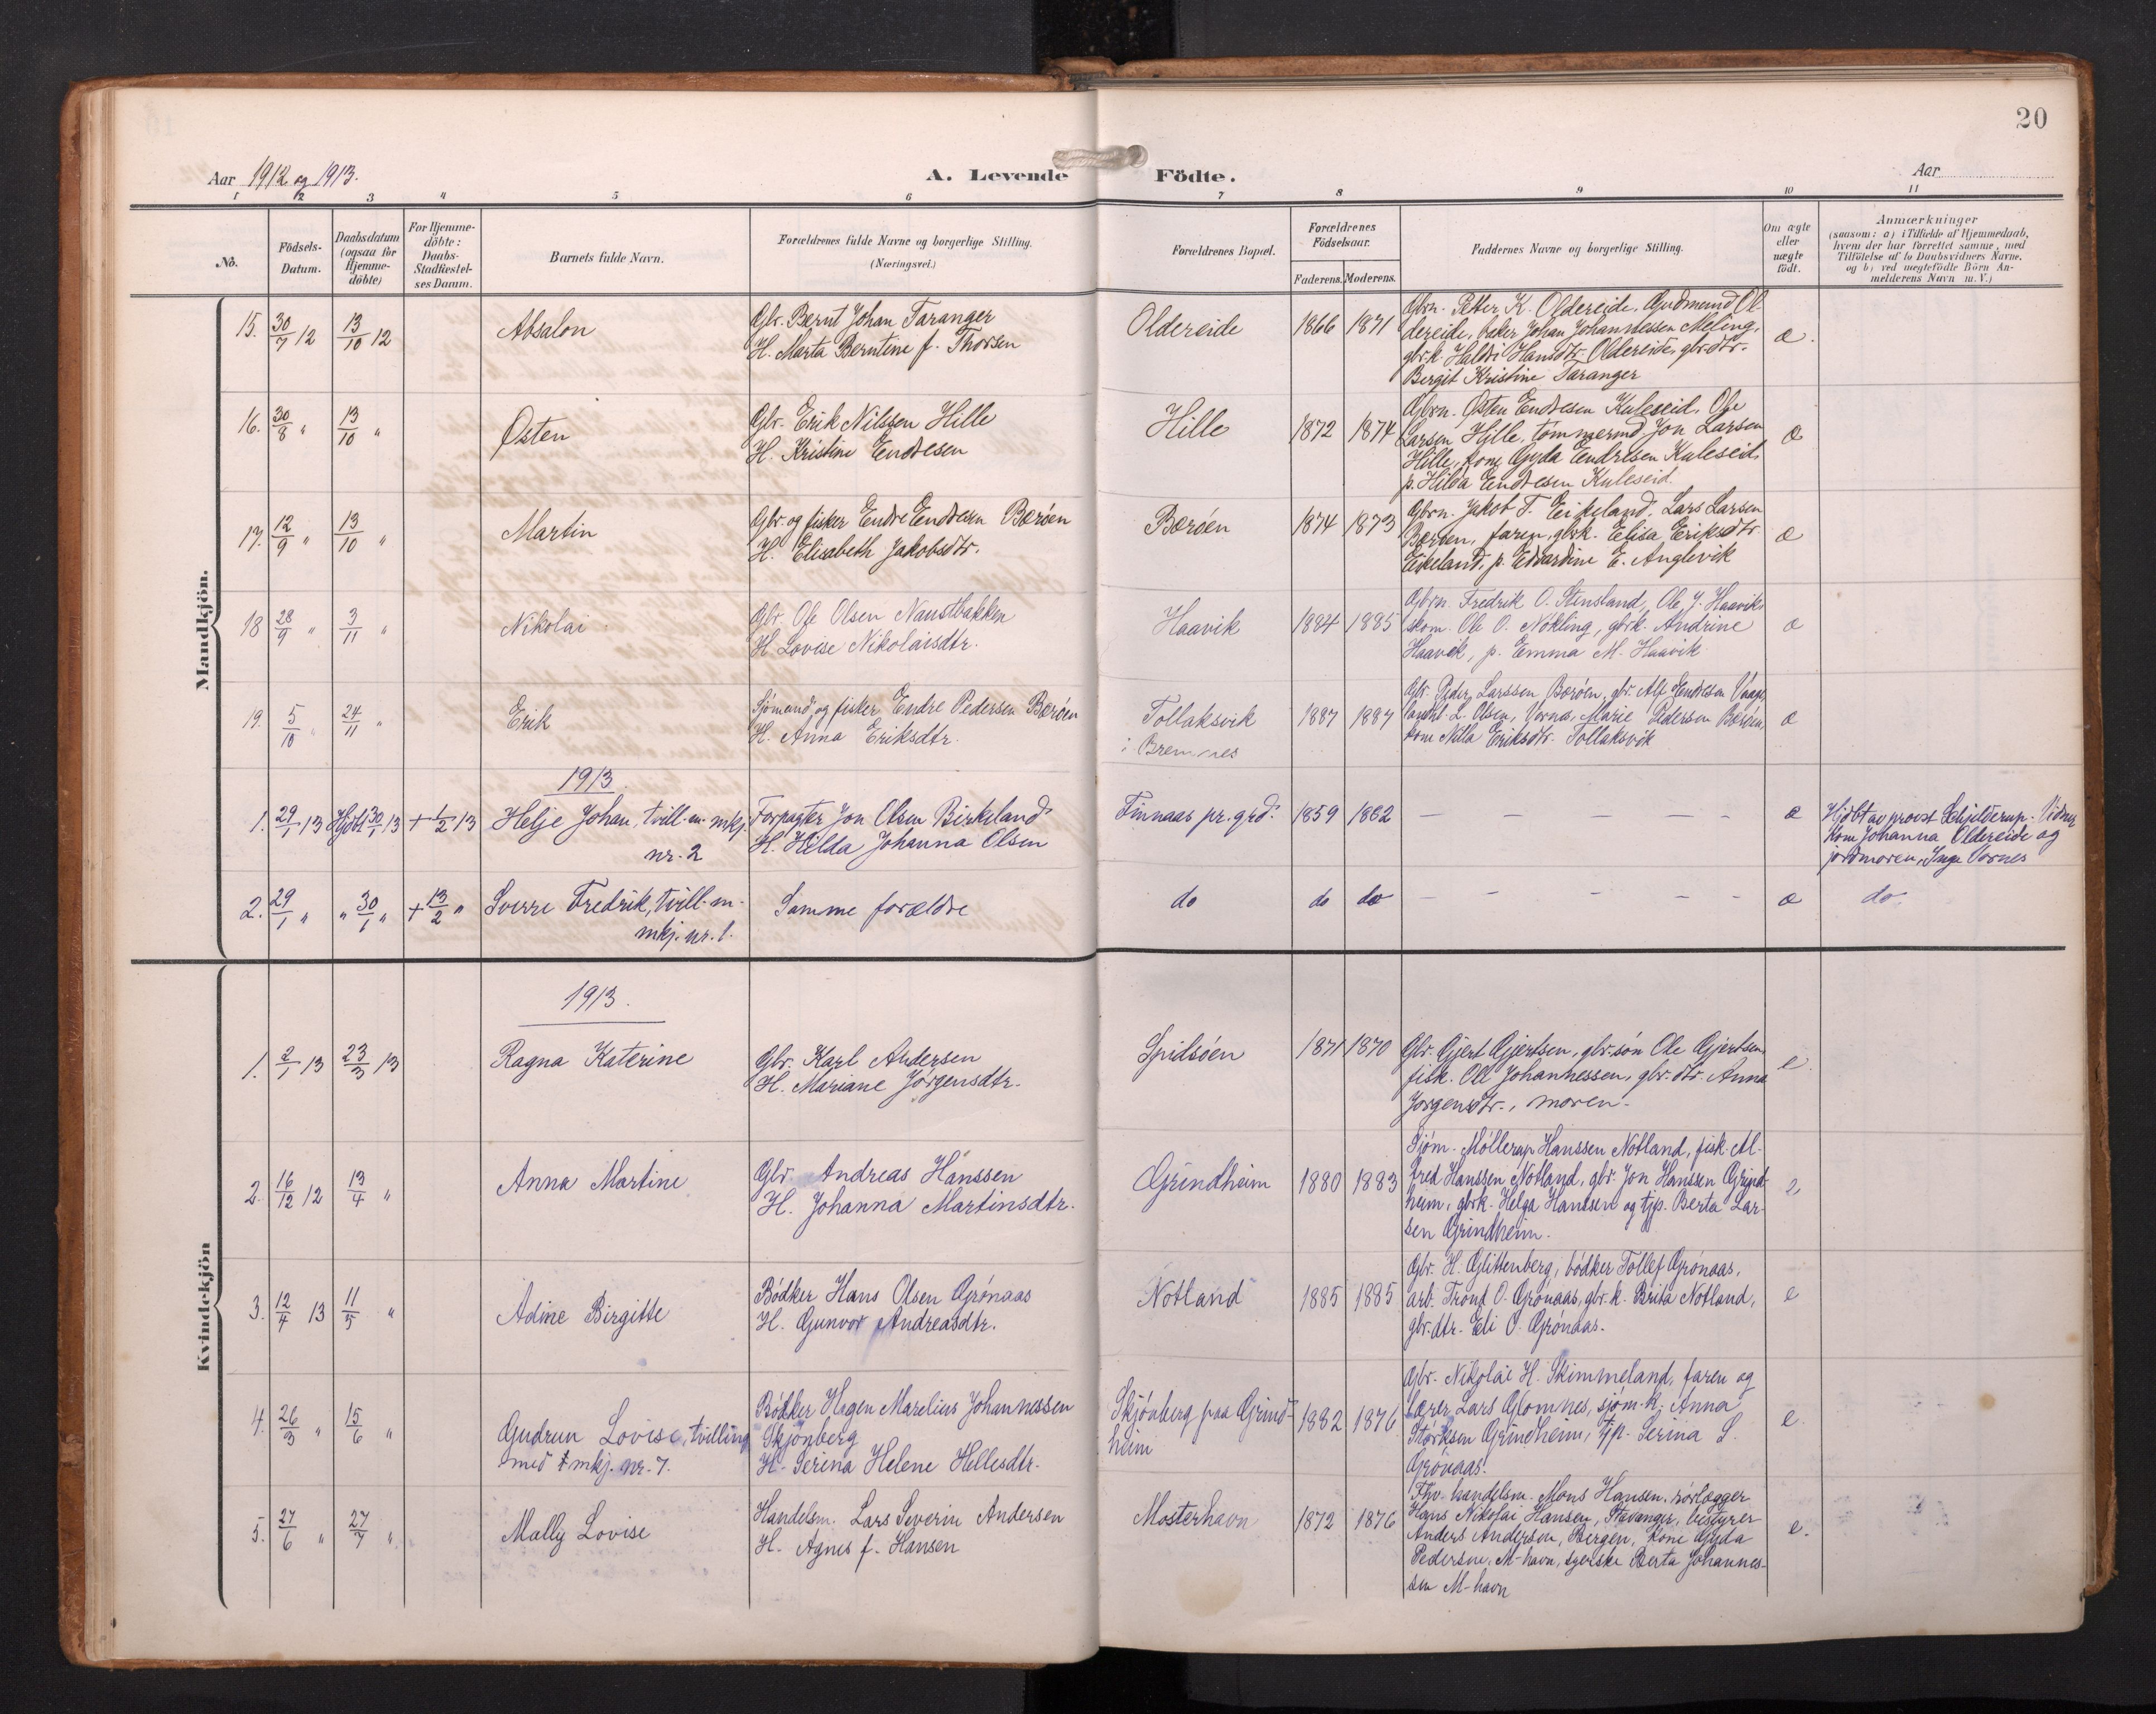 20
Aar 1912 og 1913.
A. Levende Födte.
Aar
1 2 3 4 5 6 7 8 9 10 11
No.
Födsels-Datum.
Daabsdatum (ogsaa för Hjemme-döbte)
For Hjemme-döbte: Daabs-Stadfæstel-ses Datum.
Barnets fulde Navn.
Forældrenes fulde Navne og borgerlige Stilling.
(Næringsvei.)
Forældrenes Bopæl.
Forældrenes Födselsaar.
Faderens. Moderens.
Faddernes Navne og borgerlige Stilling.
Om ægte eller uægte födt.
Anmærkninger
(saasom: a) i Tilfælde af Hjemmedaab,
hvem der har forrettet samme, med
Tilföielse af to Daabsvidners Navne.
og b) ved uægtefödte Börn An-
melderens Navn m. V.)
Mandkjön.
15. 30/7 12 13/10 12 Absalon
Gbr. Bernt Johan Taranger
H. Marta Berntine f. Thorsen
Oldereide 1866 1871
Gbrn. Petter K. Oldereide, Gudmund Ol-
dereide, baker Johan Johannessen Meling,
gbr.k. Haldi Hansdtr. Oldereide, gbr.dtr.
Bergit Kristine Taranger
æ.
16. 30/8 " 13/10 " Østen
Gbr. Erik Nilssen Hille
H. Kristine Endresen
Hille 1872 1874
Gbrn. Østen Endresen Kuleseid, Ole
Larsen Hille, tømmermd Jon Larsen
Hille, kone Gyda Endresen Kuleseid,
p. Hilda Endresen Kuleseid.
æ
17. 12/9 " 13/10 " Martin
Gbr. og fisker Endre Endresen Børöen
H. Elisabeth Jakobsdtr.
Børöen 1874 1873
Gbrn. Jakob T. Eikeland, Lars Larsen
Børöen, faren, gbrk. Elisa Eriksdtr.
Eikeland, p. Edvardine E. Anglevik
æ
18 28/9 " 3/11 " Nikolai
Gbr. Ole Olsen Naustbakken
H. Lovise Nikolaisdtr.
Haavik 1884 1885
Gbrn. Fredrik O. Stensland, Ole J. Haavik,
skom. Ole O. Nökling, gbrk. Andrine
Haavik, p. Emma M. Haavik
æ
19. 5/10 " 24/11 " Erik
Sjømand og fisker Endre Pedersen Børöen
H. Anna Eriksdtr.
Tollaksvik
i Bremnes
1887 1887
Gbr. Peder Larssen Børöen, gbr. Alf Endresen Vaage,
L. Olsen, Vornes, Marie Pedersen Børöen,
kone Nilla Eriksdtr. Tollaksvik
æ
1913
1. 29/1 13 Hjdbt 30/1 13 + 1/2 13 Helje Johan, tvill. m. mkj.
nr. 2
Forpagter Jon Olsen Birkeland
H. Hilda Johanna Olsen
Finnaas pr. grd. 1859 1882 — — — — —
æ
Hjdbt av provst Schjelderup. Vidner
kone Johanna Oldereide og
jordmoren, Inga Vornes
2. 29/1 " " 30/1 " + 13/2 " Sverre Fredrik, tvill. m.
mkj. nr. 1.
Samme forældre
do do do — — — — —
æ do.
Kvindekjön
1913.
1. 2/1 13 23/3 13 Ragna Katerine
Gbr. Karl Andersen
H. Mariane Jörgensdtr.
Spidsöen 1871 1870
Gbr. Gjert Gjertsen, gbr.sön Ole Gjertsen,
fisk. Ole Johannessen, gbr. dtr. Anna
Jørgensdtr., moren.
e.
2. 16/12 12 13/4 " Anna Martine
Gbr. Andreas Hanssen
H. Johanna Martinsdtr.
Grindheim 1880 1883
Sjøm. Möllerup Hanssen Notland, fisk. Al-
fred Hanssen Notland, gbr. Jon Hanssen Grind-
heim, gbrk. Helga Hanssen og tjp. Berta Lar-
sen Grindheim.
e
3. 12/4 13 11/5 " Adine Birgitte
Bödker Hans Olsen Grönaas
H. Gunvor Andreasdtr.
Notland 1885 1885
Gbr. H. Glittenberg, bödker Tollef Grönaas,
arb. Trond O. Grönaas, gbr. k. Brita Notland,
gbr.dtr. Eli O. Grönaas.
e
4. 26/3 " 15/6 " Gudrun Lovise, tvilling
med mkj. nr. 7.
Bödker Hagen Marelius Johannessen
Skjönberg
H. Serina Helene Hellesdtr.
Skjönberg paa Grind-
heim
1882 1876
Gbr. Nikolai H. Skimmeland, faren og
lærer Lars Glomnes, sjöm. k. Anna
Störksen Grindheim, tjp. Serina S.
Grönaas.
e.
5. 27/6 " 27/7 " Mally Lovise
Handelsm. Lars Severin Andersen
H. Agnes f. Hansen
Mosterhavn 1872 1876
Fhv. handelsm. Mons Hansen, rörlægger
Hans Nikolai Hansen, Stavanger, bestyrer
Anders Andersen, Bergen, kone Gyda
Pedersen, M-havn, syerske Berta Johannes-
sen M-havn
e.